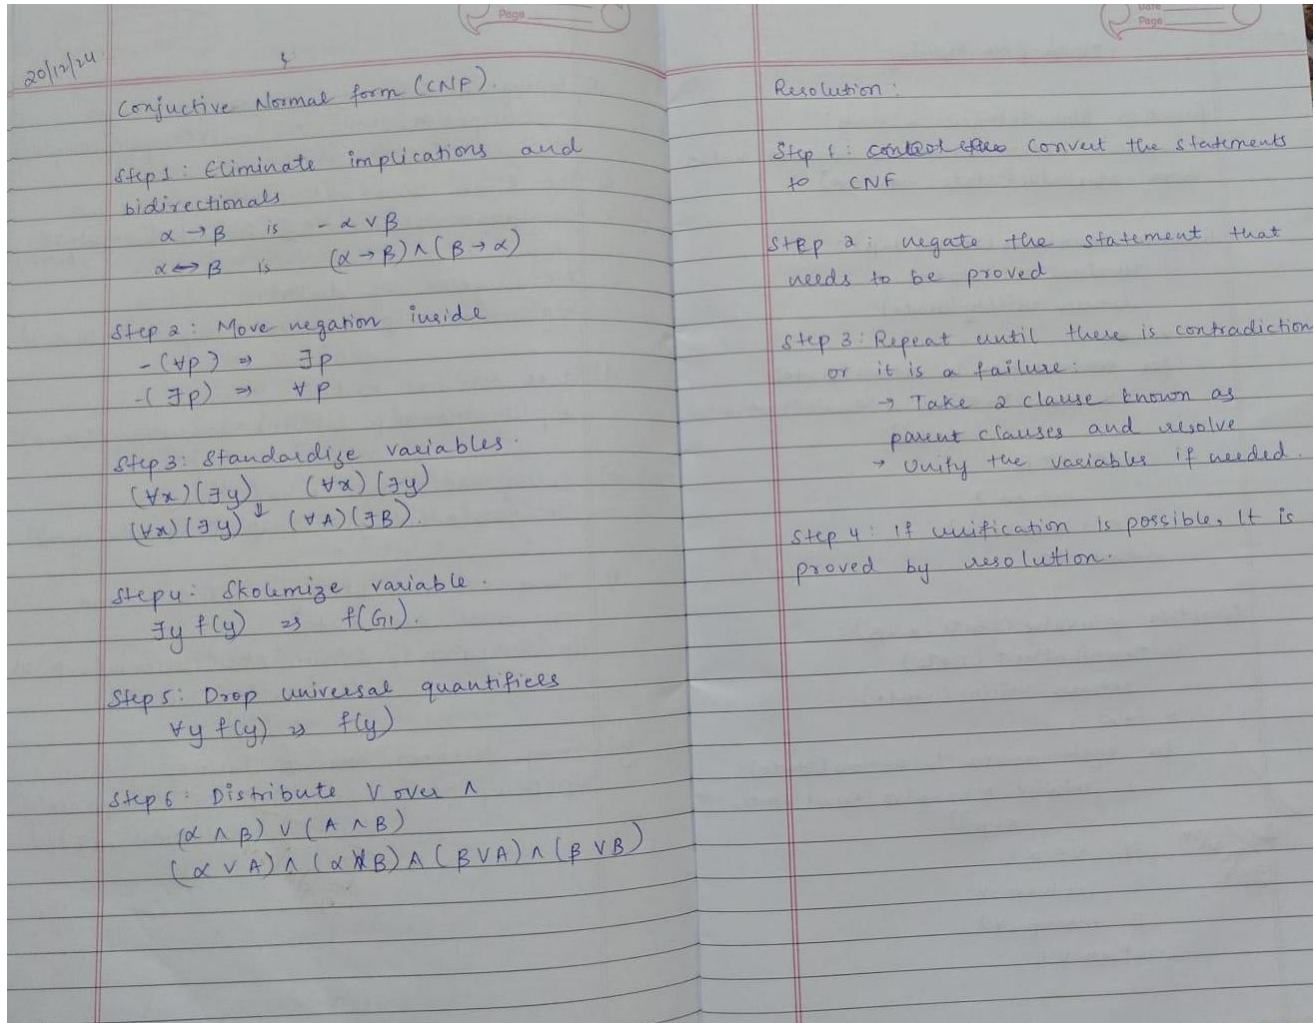 Page
20/12/24
Conjuctive Normal form (CNF).
Step 1: Eliminate implications and
bidirectionals
α → β is - α ∨ β
α ↔ β is (α → β) ∧ (β → α)
Step 2: Move negation inside
-(∀p) ⇒ ∃p
-(∃p) ⇒ ∀p
Step 3: Standardize variables.
(∀x)(∃y) (∀x)(∃y)
↓
(∀x)(∃y) (∀A)(∃B).
Step 4: Skolemize variable.
∃y f(y) ⇒ f(G1).
Step 5: Drop universal quantifiers
∀y f(y) ⇒ f(y)
Step 6: Distribute ∨ over ∧
(α ∧ β) ∨ (A ∧ B)
(α ∨ A) ∧ (α ∨ B) ∧ (β ∨ A) ∧ (β ∨ B)
Date
Page
Resolution:
Step 1: Convert the statements
to CNF
Step 2: negate the statement that
needs to be proved
Step 3: Repeat until there is contradiction
or it is a failure:
→ Take 2 clause known as
parent clauses and resolve
→ Unify the variables if needed.
Step 4: If unification is possible, It is
proved by resolution.